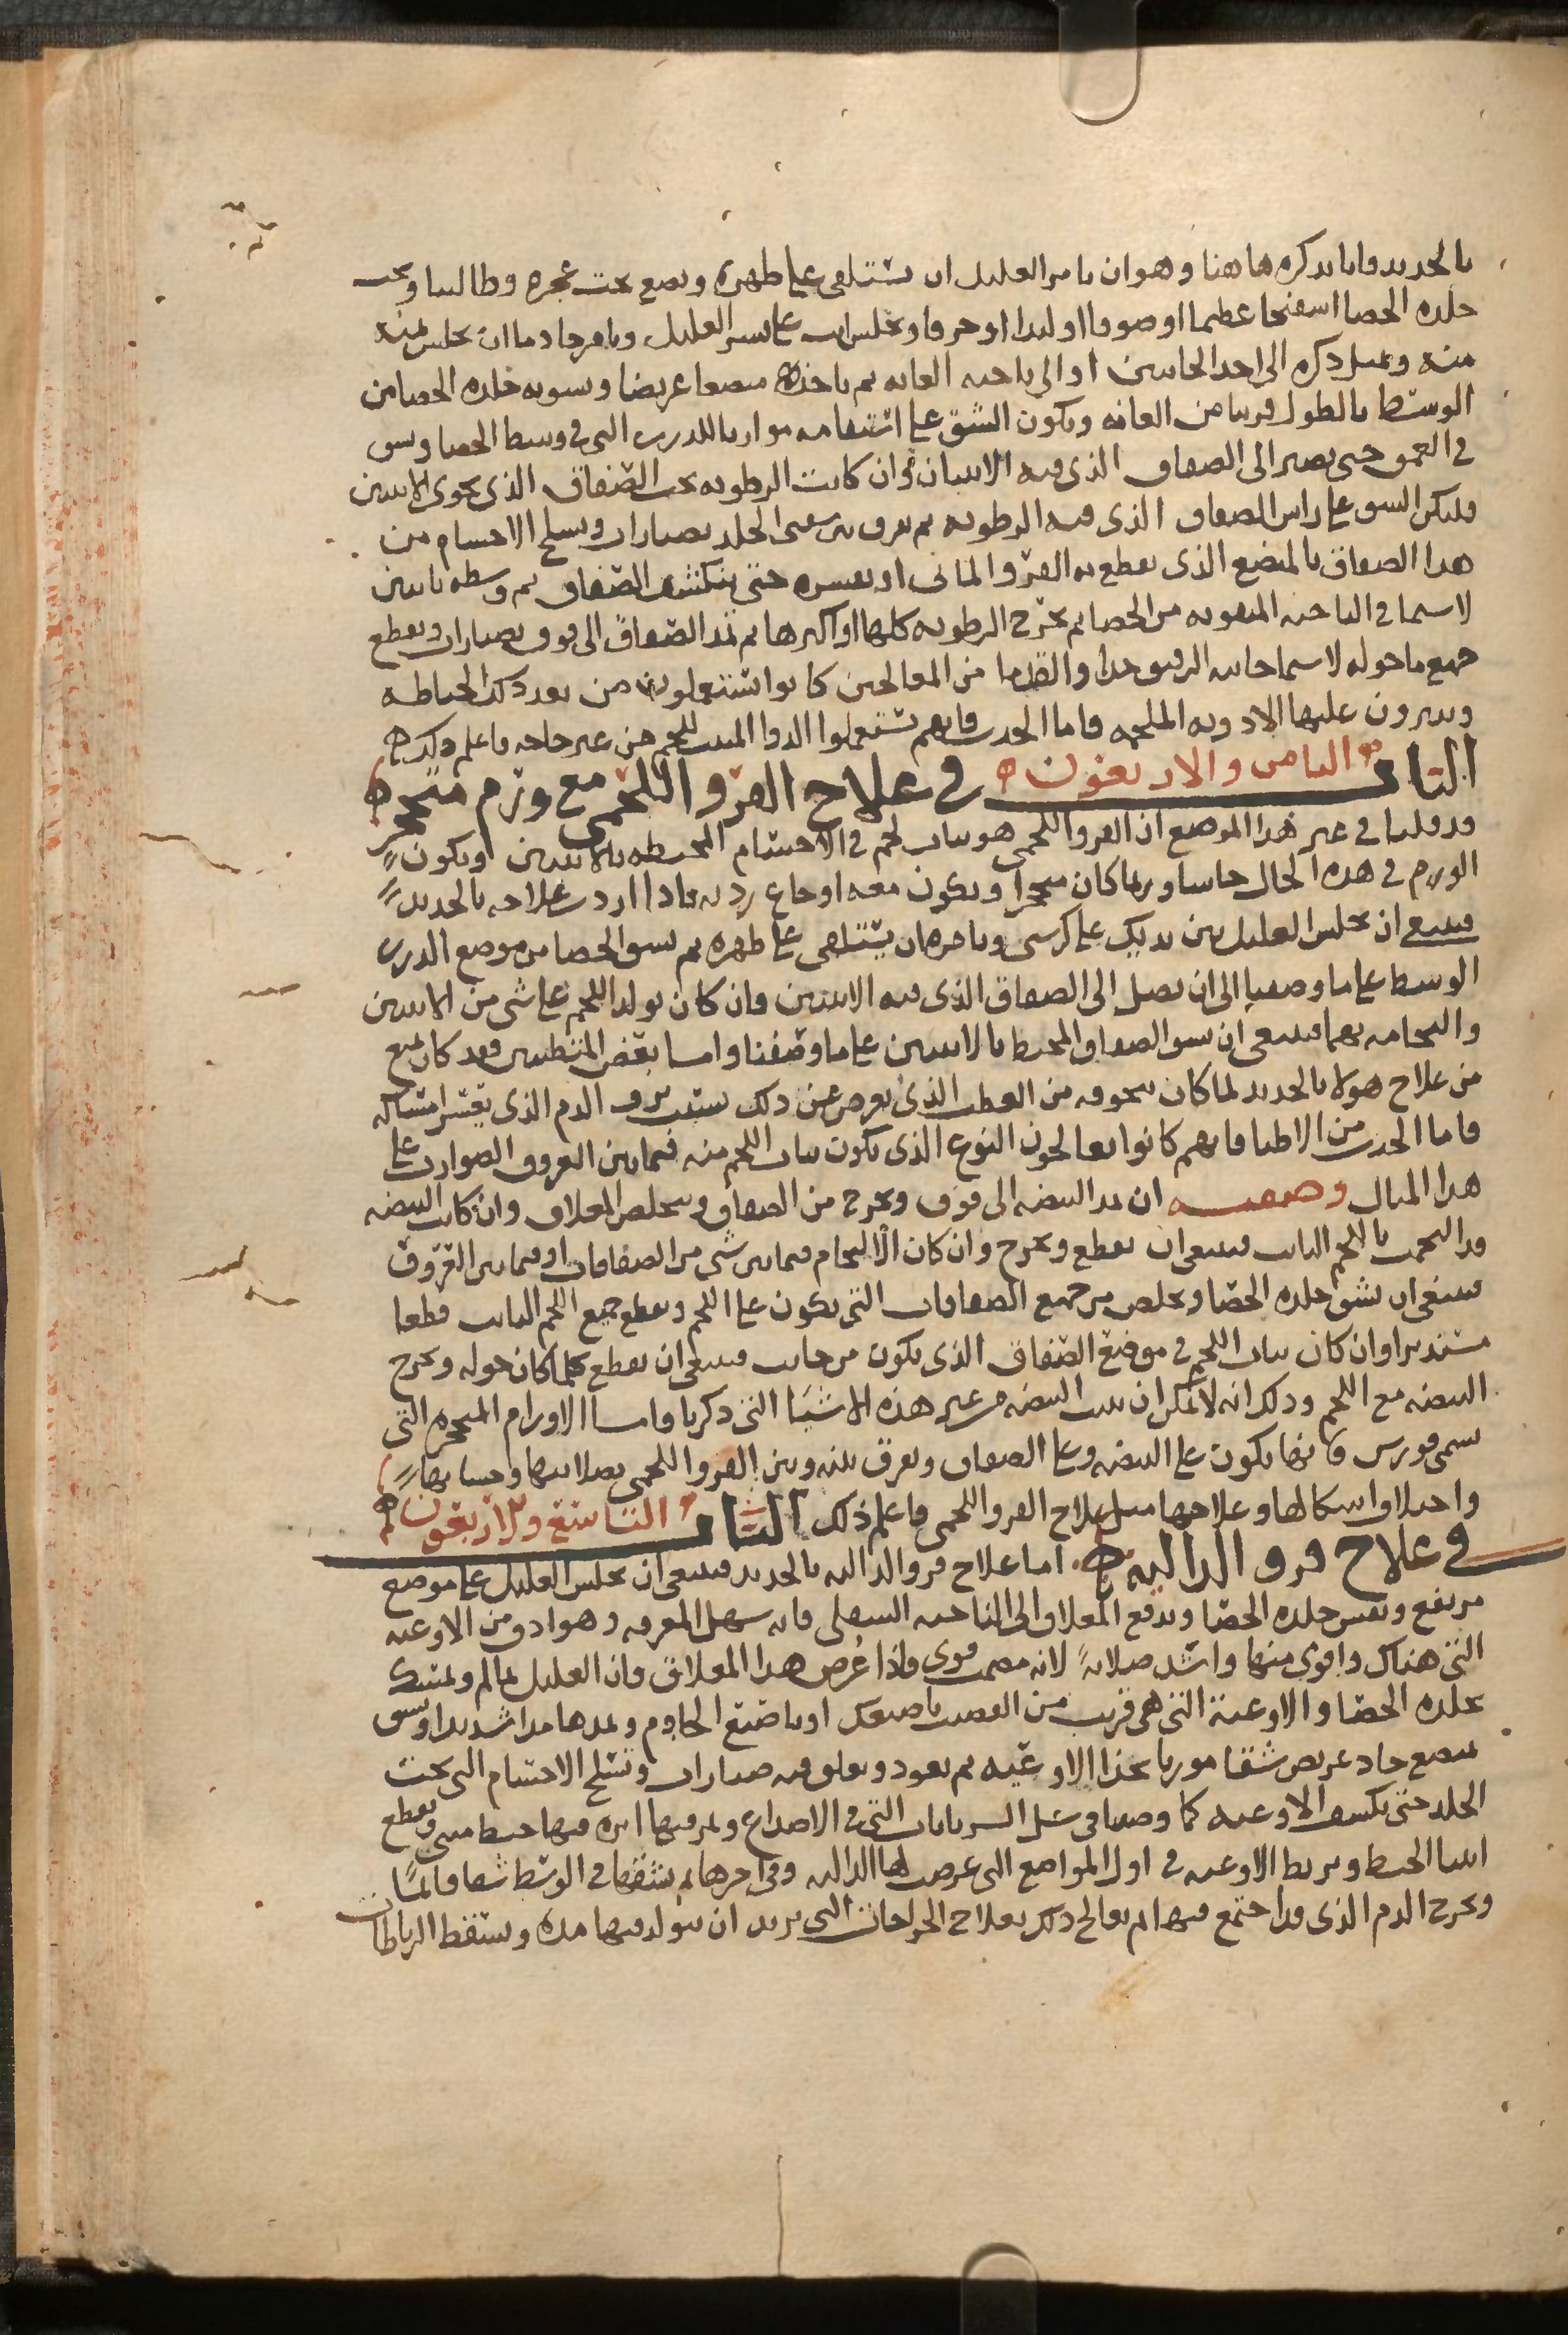 بالحديد فانا نذكره هاهنا وهو ان نامر العليل ان يستلقى على ظهره ونضع تحت عجزه وطا لينا وتحت
جلده الخصا اسفنجا عظيما او صوفا او لبدا او خرقا وتجلس انت على يسر العليل وتامر خادما ان يجلس يمنه
منه ويميل ذكره الى احد الجانبين او الى ناحيه العانه ثم تاخذ مبضعا عريضا وتشق به جلده الخصا من
الوسط بالطول قريبا من العانه ويكون الشق على استقامه موازيا للدرب التى فى وسط الخصا وتشق
فى العمق حتى تصير الى الصفاق الذى فيه الانثيان وان كانت الرطوبه تحت الصفاق الذى يحوى الانثيين
فليكن الشق على راس الصفاق الذى فيه الرطوبه ثم تفرق بين شفتى الجلد بصنارات وتسلخ الاجسام من
هذا الصفاق بالمبضع الذى يقطع به القرو المائى او بغيره حتى ينكشف الصفاق ثم وسطه باثنين
لا سيما فى الناحيه المثقوبه من الخصا ثم تخرج الرطوبه كلها او اكثرها ثم تمد الصفاق الى فوق بصنارات وتقطع
جميع ما حوله لا سيما جانبه الرقيق جدا والقدما من المعالجين كانوا يستعملون من بعد ذلك الخياطه
ويذرون عليها الادويه الملحمه فاما الحدث فانهم يستعملوا الدوا المنبت للحم من غير حاجه فاعلم ذلك ه
الباب الثامن والاربعون ه فى علاج القرو اللحمى مع ورم متحجر ه
قد قلنا فى غير هذا الموضع ان القرو اللحمى هو نبات لحم فى الاجسام المحيطه بالانثيين ويكون
الورم فى هذه الحال جاسا وربما كان متحجرا ويكون معه اوجاع رديه فاذا اردت علاجه بالحديد
فينبغى ان تجلس العليل بين يديك على كرسى وتامره ان يستلقى على ظهره ثم تشق الخصا من موضع الدرب
الوسط على ما وصفنا الى ان تصل الى الصفاق الذى فيه الانثيين فان كان تولد اللحم على شى من الانثيين
والتحامه بهما فينبغى ان تشق الصفاق المحيط بالانثيين على ما وصفنا واما بعض المتطببين فقد كان يمنع
من علاج هولا بالحديد لما كان يتخوفه من العطب الذى يعرض عن ذلك بسبب نزف الدم الذى يعسر امتساكه
فاما الحدث من الاطبا فانهم كانوا يعالجون النوع الذى يكون نبات اللحم منه فيما بين العروق الضوارب على
هذا المثال وصفته ان تمد البيضه الى فوق وتخرج من الصفاق وتتخلص المعلاق وان كانت البيضه
قد التحمت باللحم النابت فينبغى ان تقطع وتخرج وان كان الالتحام فيما بين شى من الصفاقات او فيما بين العروق
فينبغى ان تشق جلده الخصا وتخلص من جميع الصفاقات التى تكون على اللحم وتقطع جميع اللحم النابت قطعا
مستديرا وان كان نبات اللحم فى موضع الصفاق الذى يكون من جانب فينبغى ان تقطع كلما كان حوله وتخرج
البيضه مع اللحم وذلك انه لا يمكن ان تثبت البيضه من غير هذه الاشيا التى ذكرنا واما الاورام المتحجره التى
تسمى فورس فانها تكون على البيضه وعلى الصفاق ويفرق بينه وبين القرو اللحمى بصلابتها وجسائها
واختلاف اشكالها وعلاجها مثل علاج القرو اللحمى فاعلم ذلك الباب التاسع والاربعون ه
فى علاج قرو الداليه ه اما علاج قرو الداليه بالحديد فينبغى ان تجلس العليل على موضع
مرتفع وتفتش جلده الخصا وتدفع المعلاق الى الناحيه السفلى فانه سهل المعرفه وهو ادق من الاوعيه
التى هناك واقوى منها واشد صلابة لانه مصمت قوى فاذا غمص هذا المعلاق فان العليل يتالم ويمسك
جلده الخصا والاوعية التى هى قريب من القضيب باصبعك او باصبع الخادم وتمدها مدا شديدا وتشق
بمبضع حاد عريض شقا موربا بحذا الاوعيه ثم تعود وتعلق فيه صنارات وتسلخ الاجسام التى تحت
الجلد حتى تكشف الاوعيه كما وصفنا فى سل الشريانات التى فى الاصداغ وتمر فيها ابره فيها خيط مثنى وتقطع
اثنا الخيط وتربط الاوعيه فى اول المواضع التى عرض لها الداليه وفى اخرها ثم تشقها فى الوسط شقا قائما
وتخرج الدم الذى قد اجتمع فيها ثم تعالج ذلك بعلاج الجراحات التى تريد ان تتولد فيها مده وتسقط الرباطات